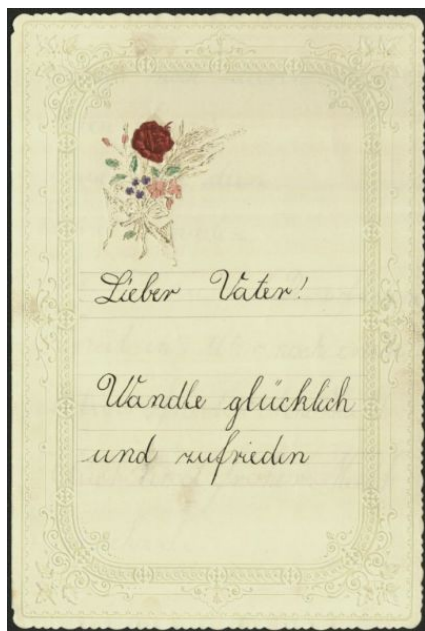 Lieber Vater!
Wandle glücklich
und zufrieden